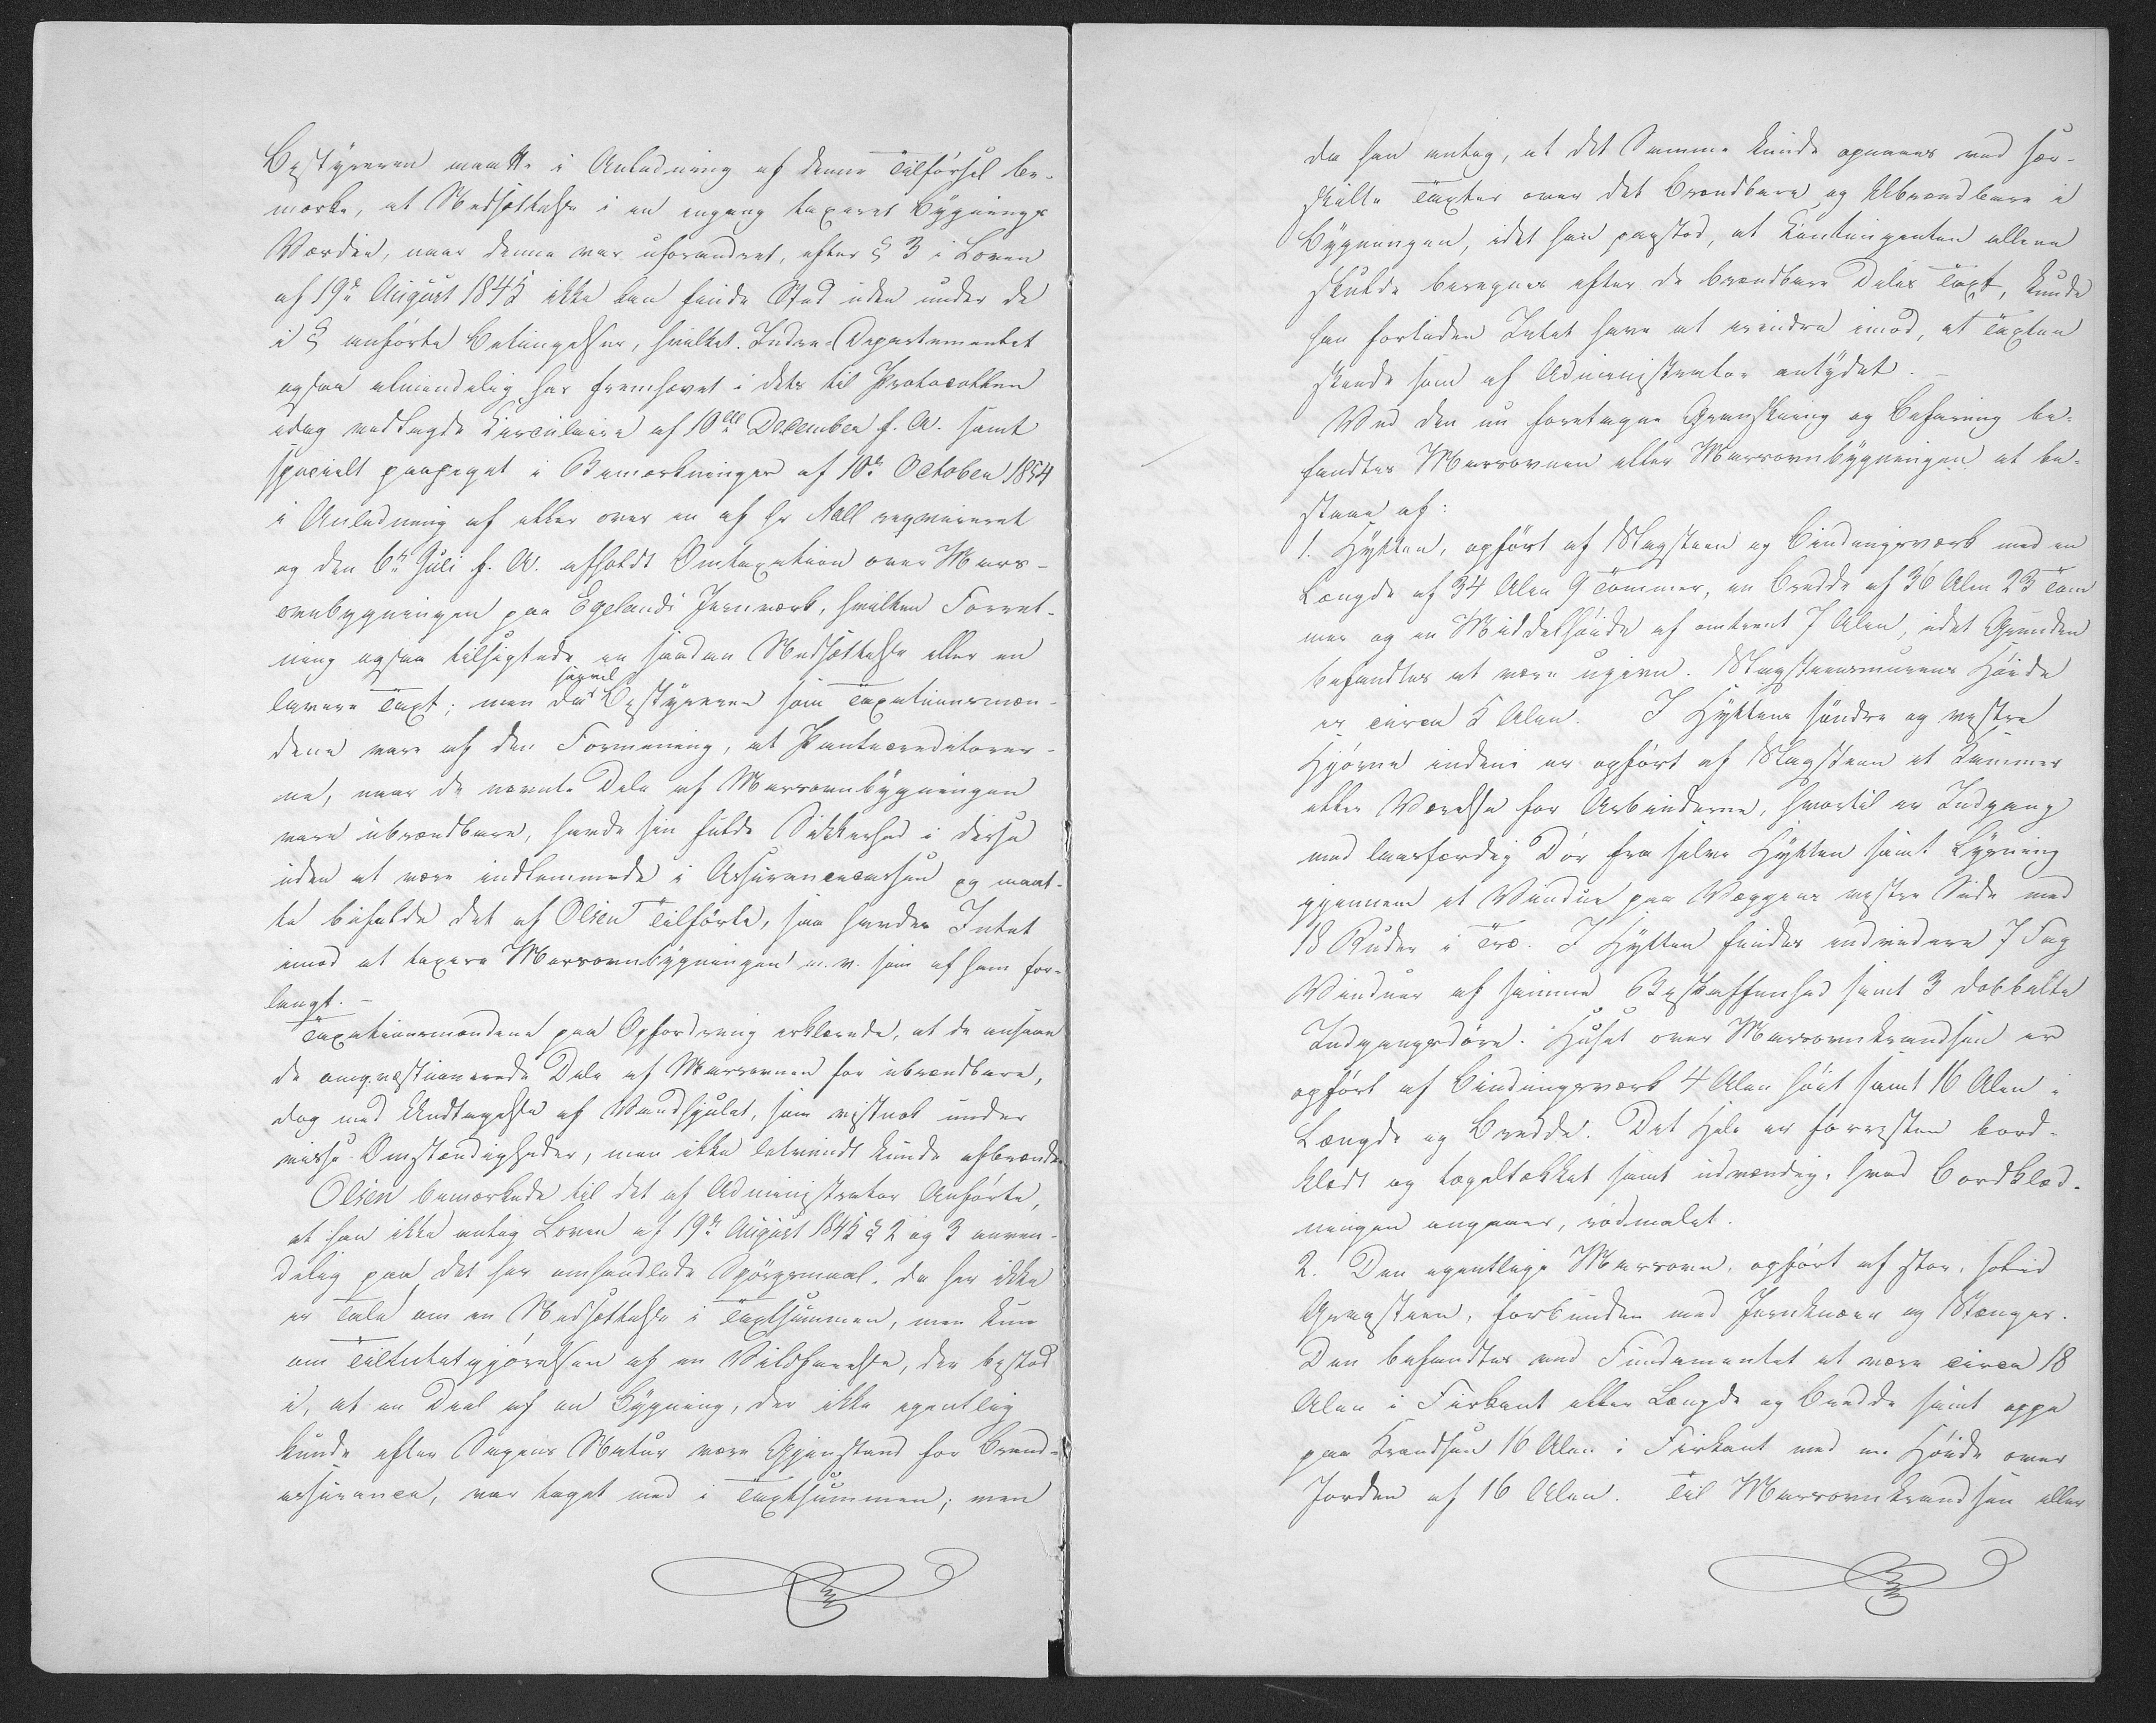 Bestyreren maatte i Anledning af denne Tilførsel be-
mærke, at Nedsættelse i en engang taxeret Bygnings
Værdie, naar denne var uforandret, efter § 3 i Loven
af 19de August 1845 ikke kan finde Sted uden under de
i § anførte Betingelser, hvilket Indre-Departementet
ogsaa almindelig har fremhævet i dets til Protocollen
idag vedlagde Circulaire af 10de December f. A. samt
specielt paapeget i Bemærkninger af 10de October 1854
i Anledning af eller over en af Hr Aall reqvireret
og den 6te Juli f. A. afholdt Omtaxation over Mars-
ovnbygningen paa Egelands Jernværk, hvilken Forret-
ning ogsaa tilsigtede en saadan Nedsættelse eller en
lavere Taxt; men da saavel Bestyreren som Taxationsmæn-
dene vare af den Formening, at Pantecreditorer-
ne, naar de nævnte Dele af Marsovnbygningen
vare ubrændbare, havde sin fulde Sikkerhed i disse
uden at være indlemmede i Assurancecassen og maat-
te bifalde det af Olsen Tilførte, saa havdes Intet
imod at taxere Marsovnbygningen m. v. som af ham for-
langt. –
Taxationsmændene paa Opfordring erklærede, at de ansaae
de omqvæstionerede Dele af Marsovnen for ubrændbare,
dog med Undtagelse af Vandhjulet, som vistnok under
visse Omstændigheder, men ikke letvindt kunde afbrænde
Olsen bemærkede til det af Administrator Anførte,
at han ikke antog Loven af 19de August 1845 § 2 og 3 anven-
delig paa det her omhandlede Spørgsmaal, da her ikke
er Tale om en Nedsættelse i Taxtsummen, men kun
om Tilintetgjørelsen af en Vildfarelse, der bestod
i, at en Deel af en Bygning, der ikke egentlig
kunde efter Sagens Natur være Gjenstand for Brand-
assurance, var taget med i Taxtsummen; men
da han antog, at det Samme kunde opnaaes ved sær-
skilte Taxter over det Brændbare og Ubrændbare i
Bygningen, idet han paastod, at Contingenten allene
skulde beregnes efter de brændbare Deles Taxt, kunde
han forleden Intet have at erindre imod, at Taxten
skeede som af Administrator antydet. –
Ved den nu foretagne Granskning og Befaring be-
fandtes Marsovnen eller Marsovnbygningen at be-
staae af:
1. Hytten, opført af Slagsteen og Bindingsværk med en
Længde af 34 Alen 9 Tommer, en Bredde af 36 Alen 23 Tom
mer og en Middelhøide af omtrent 7 Alen, idet Grunden
befandtes at være ujevn. Slagsteensmurens Høide
er circa 5 Alen. I Hyttens søndre og vestre
Hjørne indeni er opført af Slagsteen et Kammer
eller Værelse for Arbeiderne, hvortil er Indgang
med laasfærdig Dør fra selve Hytten samt Lysning
gjennem et Vindue paa Væggens vestre Side med
18 Ruder i Træ. I Hytten findes endvidere 7 Fag
Vinduer af samme Beskaffenhed samt 3 dobbelte
Indgangsdøre. Huset over Marsovnkrandsen er
opført af Bindingsværk 4 Alen høit samt 16 Alen i
Længde og Bredde. Det Hele er forresten bord-
klædt og tegeltækket samt udvendig, hvad Bordklæd-
ningen angaaer, rødmalet.
2. Den egentlige Marsovn, opført af stor, solid
Graasteen, forbunden med Jernknæer og Stænger.
Den befandtes ved Fundamentet at være circa 18
Alen i Firkant eller Længde og Bredde samt oppe
paa Krandsen 16 Alen i Firkant med en Høide over
Jorden af 16 Alen. Til Marsovnkrandsen eller